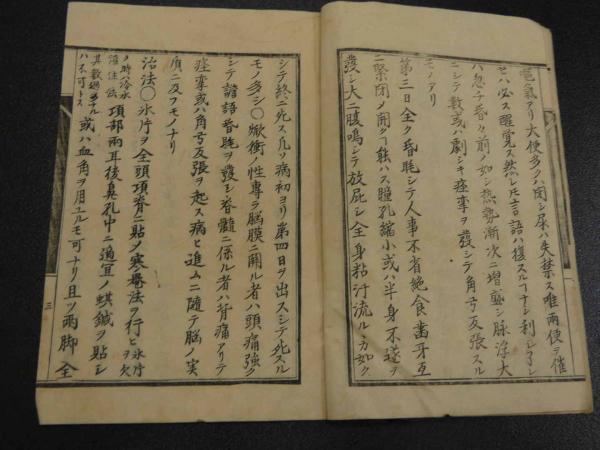 竜気アリ大便多クハ閉シ尿ハ失禁ス唯両便ヲ催
セハ必ス醒覚ス然レ𪜈言語ハ復スルヿナシ利シ了レ
ハ忽チ昏々前ノ如シ熱勢漸次ニ増盛シ脉浮大
ニシテ数或ハ劇シキ痙攣ヲ発シテ角弓反張スル
モノアリ
第三日全ク昏眊シテ人事不省絶食歯牙互
ニ緊閉メ開クヿ能ハス瞳孔縮小或ハ半身不遂ヲ
発シ大ニ腹鳴シテ放屁シ全身粘汗流ルヽ如ク
シテ終ニ死ス凡ソ病初ヨリ第四日ヲ出スシテ死スル
モノ多シ〇焮衝ノ性専ラ脳膜ニ関ル者ハ頭痛強ク
シテ譫語昏眊ヲ発シ脊髄ニ係ル者ハ背痛アリテ
痙攣或ハ角弓反張ヲ起ス病ヒ進ムニ随テ脳ノ実
質ニ及フモノナリ
治法〇氷片ヲ全頭項脊ニ貼メ寒罨法ヲ行ヒ氷片ヲ欠
ノ時ハ冷水
灌注法
項部両耳後鼻孔中ニ適宜ノ蜞鍼ヲ貼シ
其数過多ナル
ハ不可トス
或ハ血角ヲ用ユルモ可ナリ且ツ両脚全
三